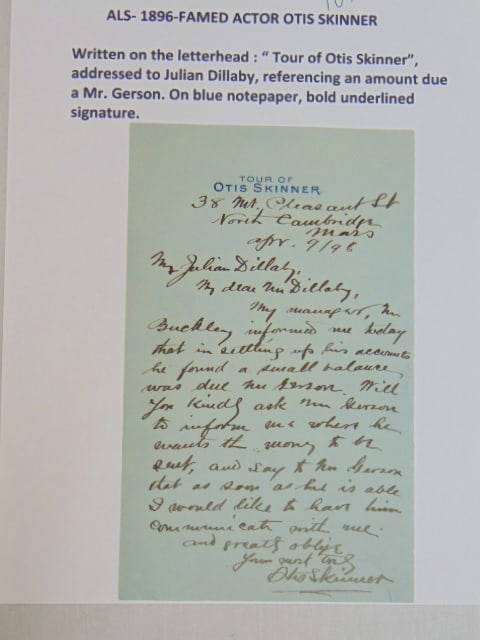 ALS- 1896-FAMED ACTOR OTIS SKINNER
Written on the letterhead : “ Tour of Otis Skinner”,
addressed to Julian Dillaby, referencing an amount due
a Mr. Gerson. On blue notepaper, bold underlined
signature.
TOUR OF
OTIS SKINNER
38 Mt. Pleasant St
North Cambridge
Mass
apr. 9/96
Mr Julian Dillaby,
My dear Mr Dillaby,
My manager, Mr
Buckley informed me today
that in settling up his accounts
he found a small balance
was due Mr Gerson. Will
you kindly ask Mr Gerson
to inform me where he
wants the money to be
sent, and say to Mr Gerson
that as soon as he is able
I would like to have him
communicate with me.
and greatly oblige
Yours most truly
Otis Skinner